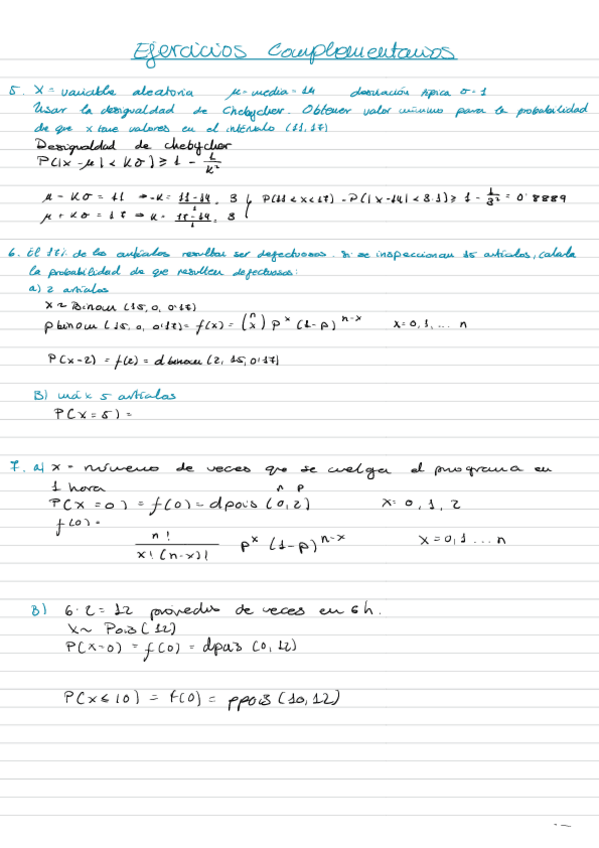 Ejercicios Complementarios
5. X = variable aleatoria μ = media = 14 desviación típica σ = 1
Usar la desigualdad de Chebycher. Obtener valor mínimo para la probabilidad
de que x tome valores en el intervalo (11,17)
Desigualdad de chebycher
P(|x - μ| < Kσ) ≥ 1 - 1/k²
μ - Kσ = 11 → -K = (11-14)/1 = 3
P(11 < x < 17) = P(|x-14| < 3·1) ≥ 1 - 1/3² = 0'8889
μ + Kσ = 17 → K = 3
6. El 17% de los artículos resultan ser defectuosos. Si se inspeccionan 15 artículos, calcula
la probabilidad de que resulten defectuosos:
a) 2 artículos
X ~ Binom (15, 0, 0'17)
pbinom (15, 0, 0'17) = f(x) = (n x) p^x (1-p)^n-x x = 0, 1, ... n
P(x=2) = f(2) = dbinom (2, 15, 0'17)
B) máx 5 artículos
P(x = 5) =
7. a) x = número de veces que se cuelga el programa en
1 hora
n p
P(X = 0) = f(0) = dpois (0, 2) x = 0, 1, 2
f(0) =
n! / x! (n-x)! p^x (1-p)^n-x x = 0, 1 ... n
B) 6 · 2 = 12 de veces en 6h.
X ~ Pois (12)
P(x=0) = f(0) = dpois (0, 12)
P(x ≤ 10) = f(0) = ppois (10, 12)